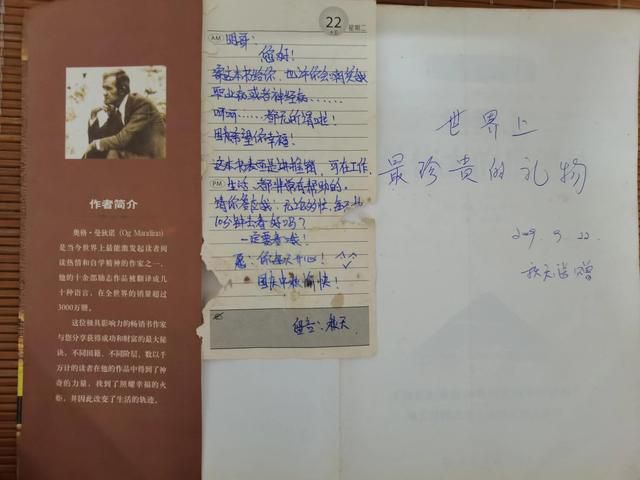 作者简介
奥格·曼狄诺 (Og Mandino)
是当今世界上最能激发起读者阅
读热情和自学精神的作家之一，
他的十余部励志作品被翻译成几
十种语言，在全世界的销量超过
3000万册。
这位极具影响力的畅销书作家
与您分享获得成功和财富的最大秘
诀，不同国籍、不同阶层、数以千
万计的读者在他的作品中得到了神
奇的力量，找到了照耀幸福的火
炬，并因此改变了生活的轨迹。
22
星期二
AM
明哥：
您好！
寄这本书给你，也许你会
职业病或者神经病……
呵呵……都无所谓啦！
因希望你幸福！
这本书表面是讲推销，可在工作、
PM
生活，都非常有帮助的。
请你答应我：无论多忙，每天
10分钟去看好吗？
一定要看哦！
愿：你每天开心！^^
国庆中秋愉快！
留言：秋天
世界上
最珍贵的礼物
2009. 9. 22.
秋天 赠